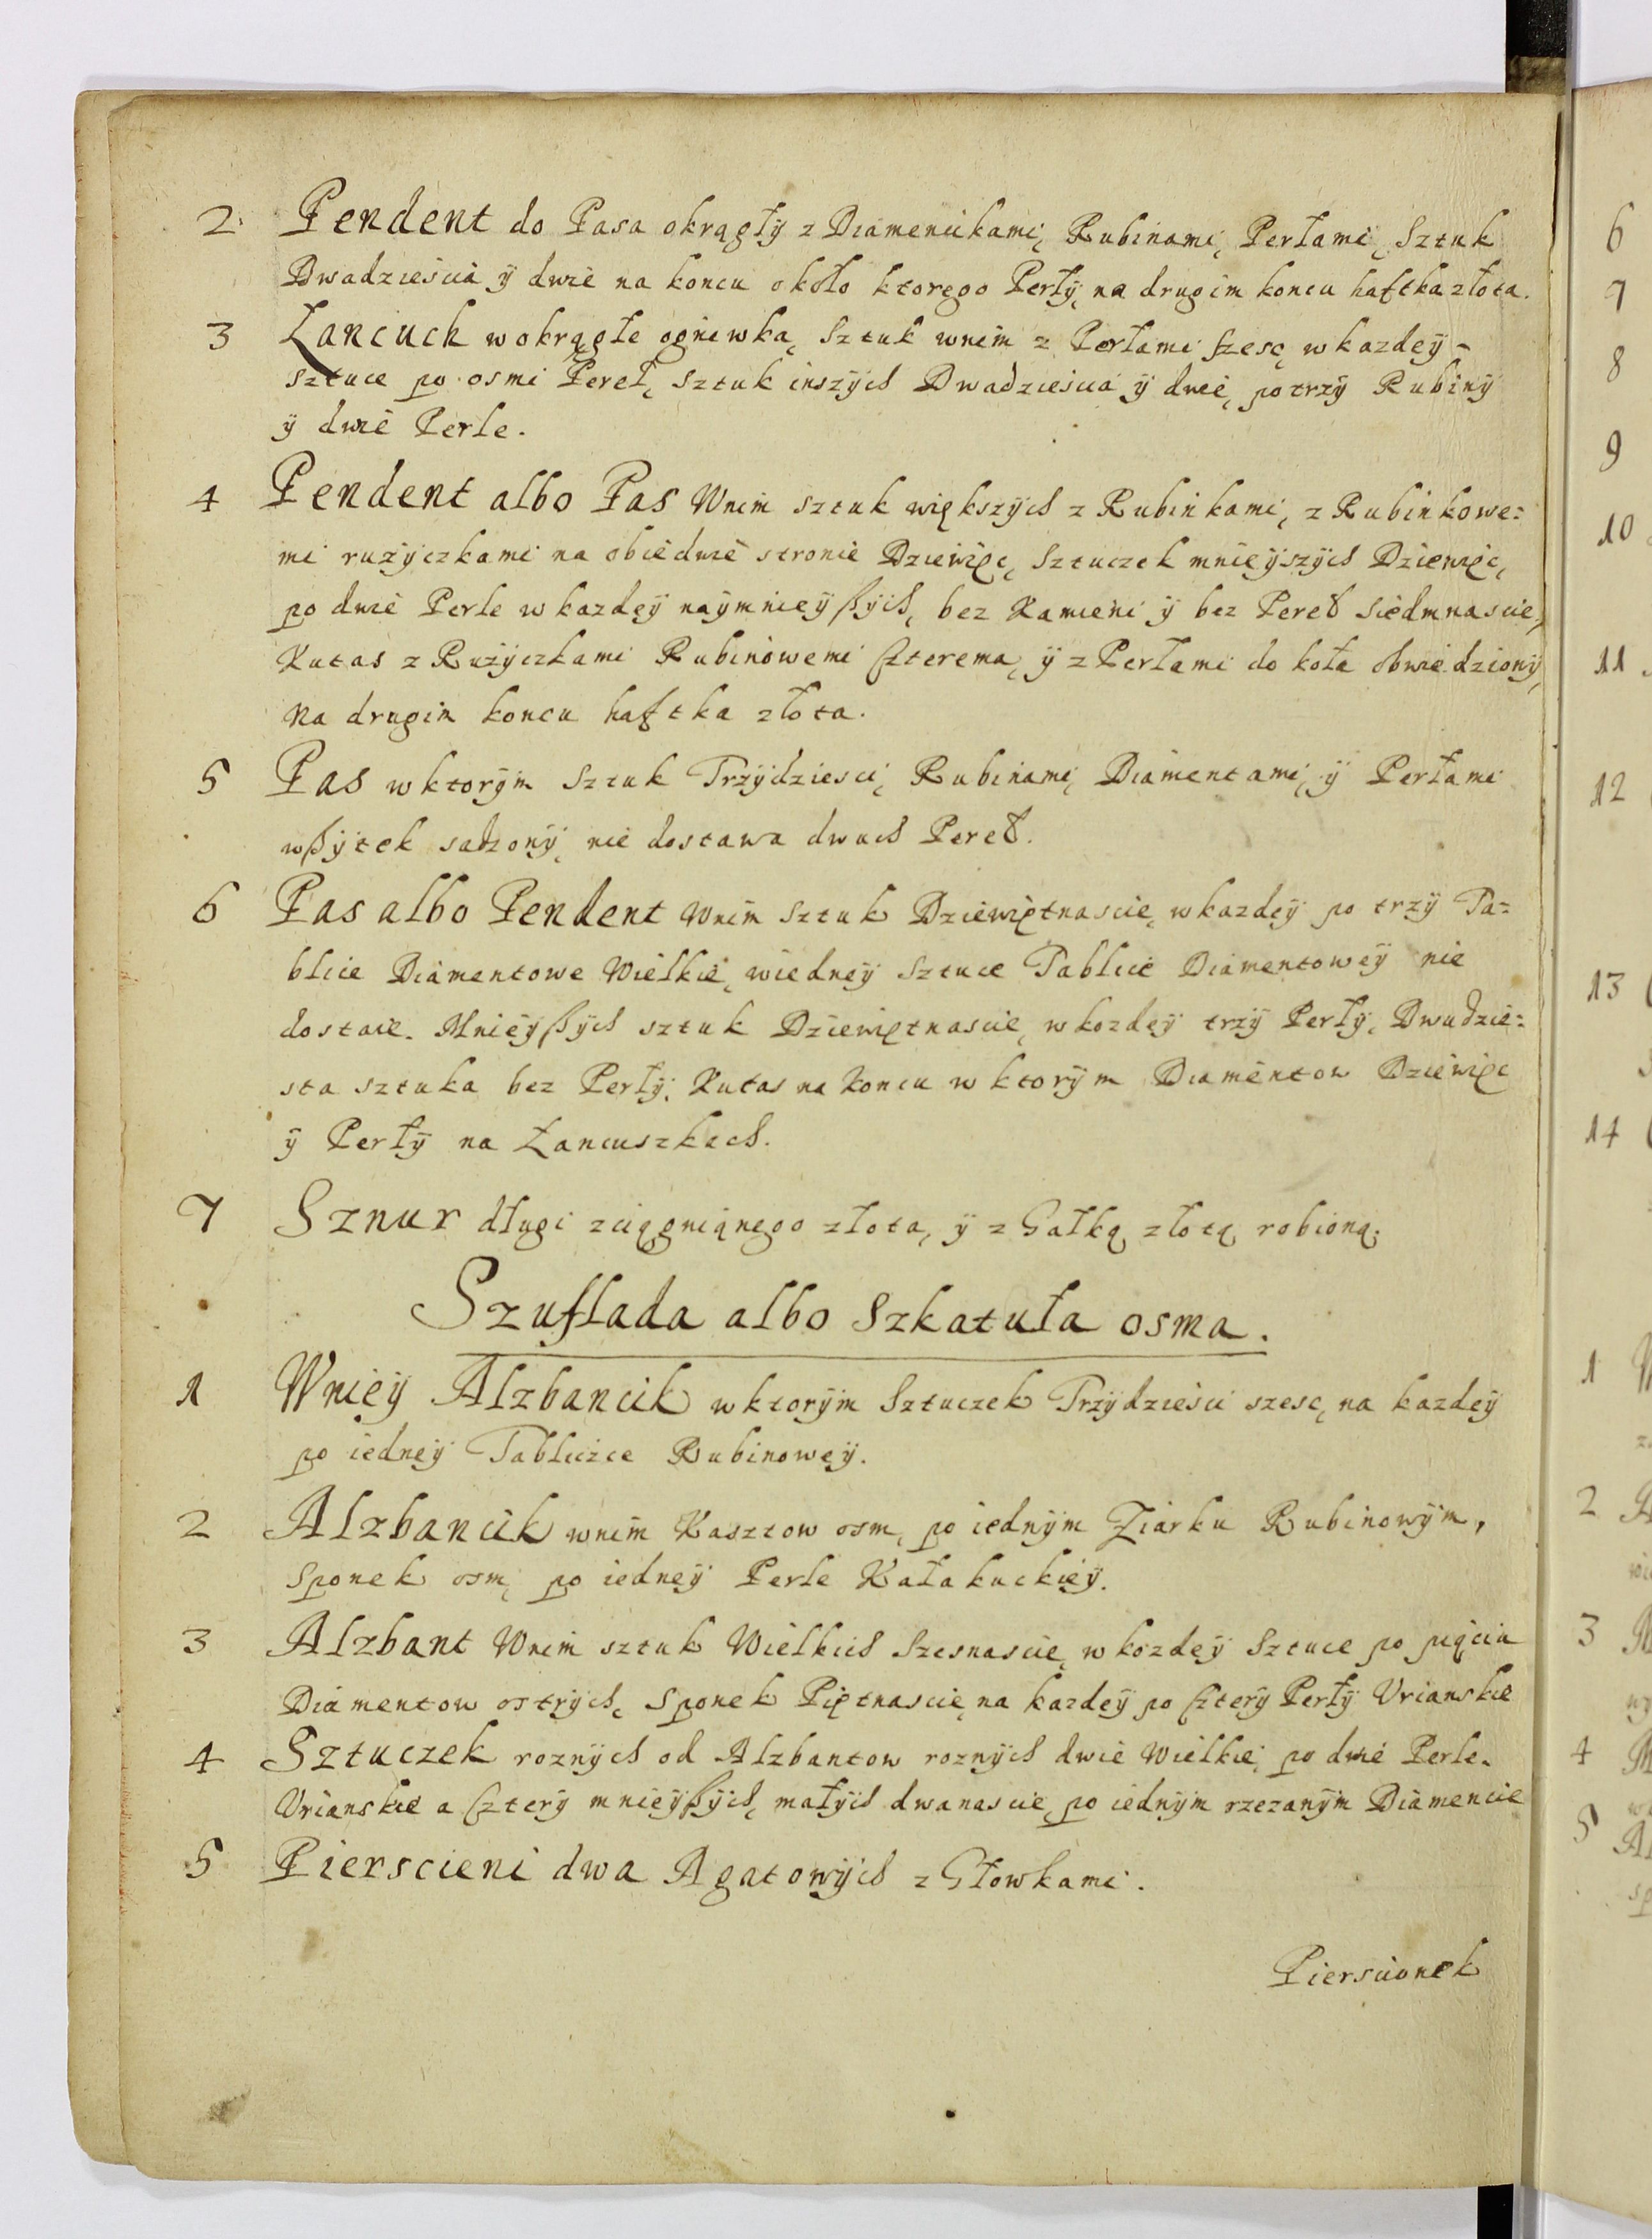 2. Pendent do Pasa okrągły z Diamencikami, Rubinami, Perłami, Sztuk
Dwadzieścia ÿ dwie na koncu około ktorego Perłÿ, na drugim koncu haftka złota.
3 Łancuch w okrągłe ogniwka, Sztuk wnim z Perłami szesc, w kazdeÿ
sztuce po osmi Pereł, Sztuk inszÿch Dwadzieścia ÿ dwie, po trzÿ Rubinÿ
ÿ dwie Perle.
4 Pendent albo Pas Wnim sztuk większÿch z Rubinkami, z Rubinkowe=
mi rużÿczkami na obiedwie stronie Dziewięc, Sztuczek mnieÿszÿch Dziewięc,
po dwie Perle w kazdeÿ naÿmnieÿßÿch, bez Kamieni ÿ bez Pereł siedmnascie,
Kutas z Rużÿczkami Rubinowemi Czterema, ÿ z Perłami do koła obwiedzionÿ,
Na drugim koncu haftka złota.
5 Pas w ktorÿm Sztuk Trzÿdziesci, Rubinami, Diamentami, ÿ Perłami
wßÿtek sadzonÿ, nie dostawa dwuch Pereł.
6 Pas albo Pendent Wnim Sztuk Dziewiętnascie, w kazdeÿ po trzÿ Ta=
blice Diamentowe Wielkie, wiedneÿ Sztuce Tablice Diamentoweÿ nie
dostaie. Mnieÿßÿch sztuk Dziewiętnascie, w kozdeÿ trzÿ Perłÿ, Dwudzie=
sta sztuka bez Perłÿ, Kutas na Koncu w ktorÿm Diamentow Dziewięc
ÿ Perłÿ na Łancuszkach.
7 Sznur długi zciągniąnego złota, ÿ z Gałką złotą robioną.
Szuflada albo Szkatuła osma.
1 Wnieÿ Alzbancik w ktorÿm Sztuczek Trzÿdziesci szesc, na kazdeÿ
po iedneÿ Tabliczce Rubinoweÿ.
2 Alzbancik wnim Kasztow osm, po iednÿm Ziarku Rubinowÿm,
Sponek osm, po iedneÿ Perle Kałakuckieÿ.
3 Alzbant Wnim sztuk Wielkich Szesnascie, w kozdeÿ Sztuce po piąciu
Diamentow ostrÿch, Sponek Piętnascie, na kazdeÿ po Czterÿ Perłÿ Urianskie
4 Sztuczek roznÿch od Alzbantow roznÿch dwie Wielkie, po dwie Perle
Urianskie a Czterÿ mnieÿßÿch, małÿch dwanascie, po iednÿm rzezanÿm Diamencie
5 Pierscieni dwa Agatowÿch z Głowkami.
Piersiconek
6
7
8
9
10
11
12
13
14
1
2
3
4
5